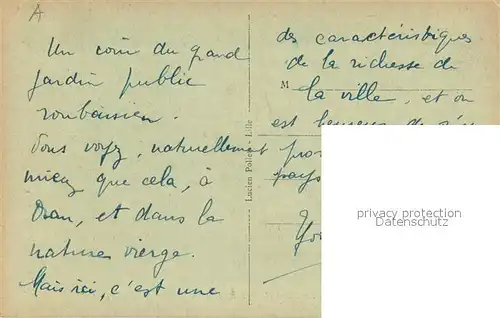 A
Un coin du grand
jardin public
roubaisien.
Vous voyez, naturellement
mieux que cela, à
Oran, et dans la
nature vierge.
Mais ici, c'est une
Lucien Pollet - Lille
des caractéristiques
de la richesse de
M la ville, et on
est heureux de
pays
privacy protection
www.ansichtskartenversand.com